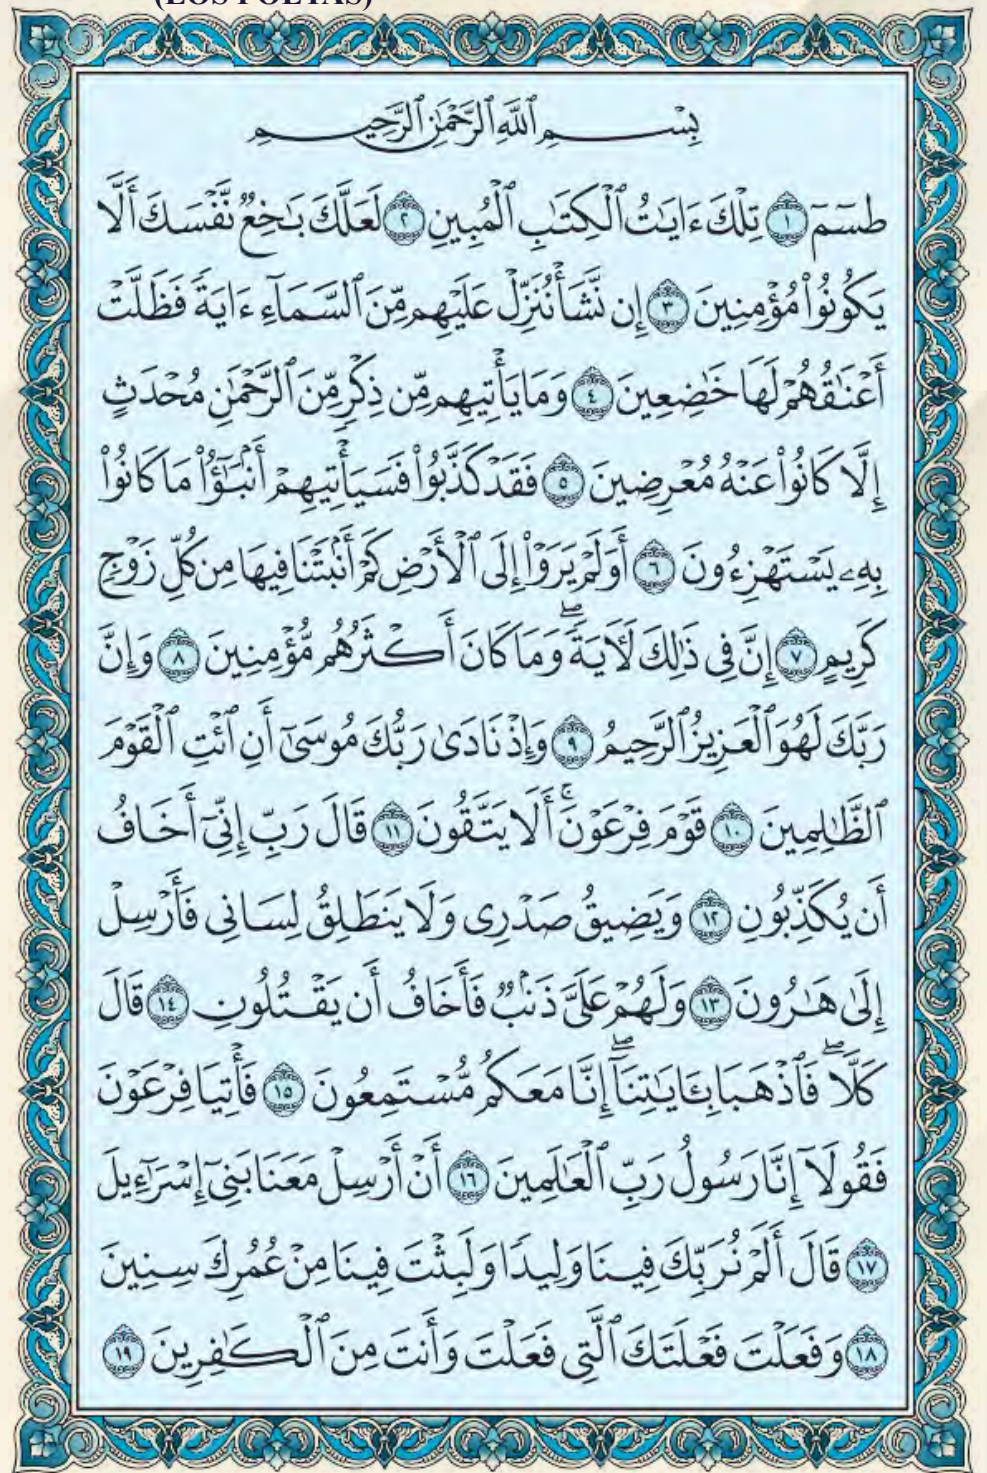 (LOS POETAS)
بِسْمِ ٱللَّهِ ٱلرَّحْمَٰنِ ٱلرَّحِيمِ
طسٓمٓ ۝١ تِلْكَ ءَايَٰتُ ٱلْكِتَٰبِ ٱلْمُبِينِ ۝٢ لَعَلَّكَ بَٰخِعٌ نَّفْسَكَ أَلَّا
يَكُونُوا۟ مُؤْمِنِينَ ۝٣ إِن نَّشَأْ نُنَزِّلْ عَلَيْهِم مِّنَ ٱلسَّمَآءِ ءَايَةً فَظَلَّتْ
أَعْنَٰقُهُمْ لَهَا خَٰضِعِينَ ۝٤ وَمَا يَأْتِيهِم مِّن ذِكْرٍ مِّنَ ٱلرَّحْمَٰنِ مُحْدَثٍ
إِلَّا كَانُوا۟ عَنْهُ مُعْرِضِينَ ۝٥ فَقَدْ كَذَّبُوا۟ فَسَيَأْتِيهِمْ أَنۢبَٰٓؤُا۟ مَا كَانُوا۟
بِهِۦ يَسْتَهْزِءُونَ ۝٦ أَوَلَمْ يَرَوْا۟ إِلَى ٱلْأَرْضِ كَمْ أَنۢبَتْنَا فِيهَا مِن كُلِّ زَوْجٍ
كَرِيمٍ ۝٧ إِنَّ فِى ذَٰلِكَ لَءَايَةً ۖ وَمَا كَانَ أَكْثَرُهُم مُّؤْمِنِينَ ۝٨ وَإِنَّ
رَبَّكَ لَهُوَ ٱلْعَزِيزُ ٱلرَّحِيمُ ۝٩ وَإِذْ نَادَىٰ رَبُّكَ مُوسَىٰٓ أَنِ ٱئْتِ ٱلْقَوْمَ
ٱلظَّٰلِمِينَ ۝١٠ قَوْمَ فِرْعَوْنَ ۚ أَلَا يَتَّقُونَ ۝١١ قَالَ رَبِّ إِنِّىٓ أَخَافُ
أَن يُكَذِّبُونِ ۝١٢ وَيَضِيقُ صَدْرِى وَلَا يَنطَلِقُ لِسَانِى فَأَرْسِلْ
إِلَىٰ هَٰرُونَ ۝١٣ وَلَهُمْ عَلَىَّ ذَنۢبٌ فَأَخَافُ أَن يَقْتُلُونِ ۝١٤ قَالَ
كَلَّا ۖ فَٱذْهَبَا بِـَٔايَٰتِنَآ ۖ إِنَّا مَعَكُم مُّسْتَمِعُونَ ۝١٥ فَأْتِيَا فِرْعَوْنَ
فَقُولَآ إِنَّا رَسُولُ رَبِّ ٱلْعَٰلَمِينَ ۝١٦ أَنْ أَرْسِلْ مَعَنَا بَنِىٓ إِسْرَٰٓءِيلَ
۝١٧ قَالَ أَلَمْ نُرَبِّكَ فِينَا وَلِيدًا وَلَبِثْتَ فِينَا مِنْ عُمُرِكَ سِنِينَ
۝١٨ وَفَعَلْتَ فَعْلَتَكَ ٱلَّتِى فَعَلْتَ وَأَنتَ مِنَ ٱلْكَٰفِرِينَ ۝١٩